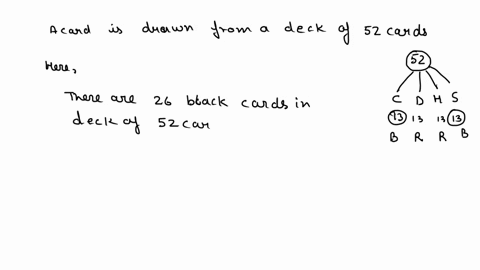 A card is drawn from a deck of 52 cards
Here,
There are 26 black cards in
deck of 52 car
52
C D H S
13 13 13 13
B R R B